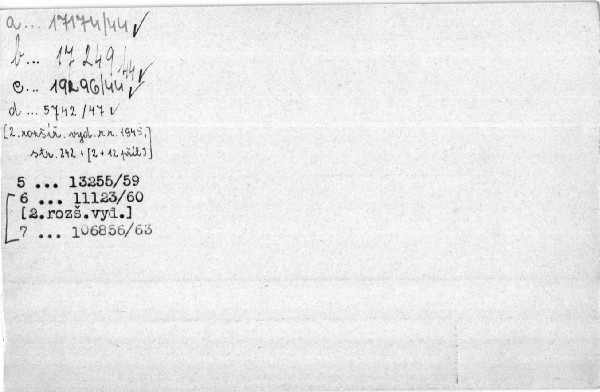 a... 17174/44 ✓
b... 17.249/44 ✓
c... 19296/44 ✓
d... 5742/47 ✓
[2. rozšíř. vyd. z r. 1945,
str. 242 + [2 + 12 příl.]]
5 ... 13255/59
6 ... 11123/60
[2.rozš.vyd.]
7 ... 106856/63